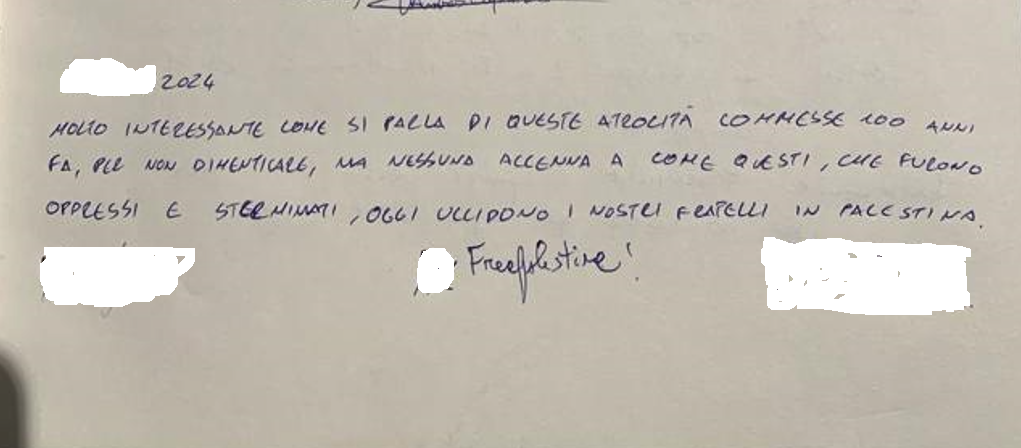 2024
MOLTO INTERESSANTE COME SI PARLA DI QUESTE ATROCITÀ COMMESSE 100 ANNI
FA, PER NON DIMENTICARE, MA NESSUNA ACCENNA A COME QUESTI, CHE FURONO
OPPRESSI E STERMINATI, OGGI UCCIDONO I NOSTRI FRATELLI IN PALESTINA.
Freepalestine!